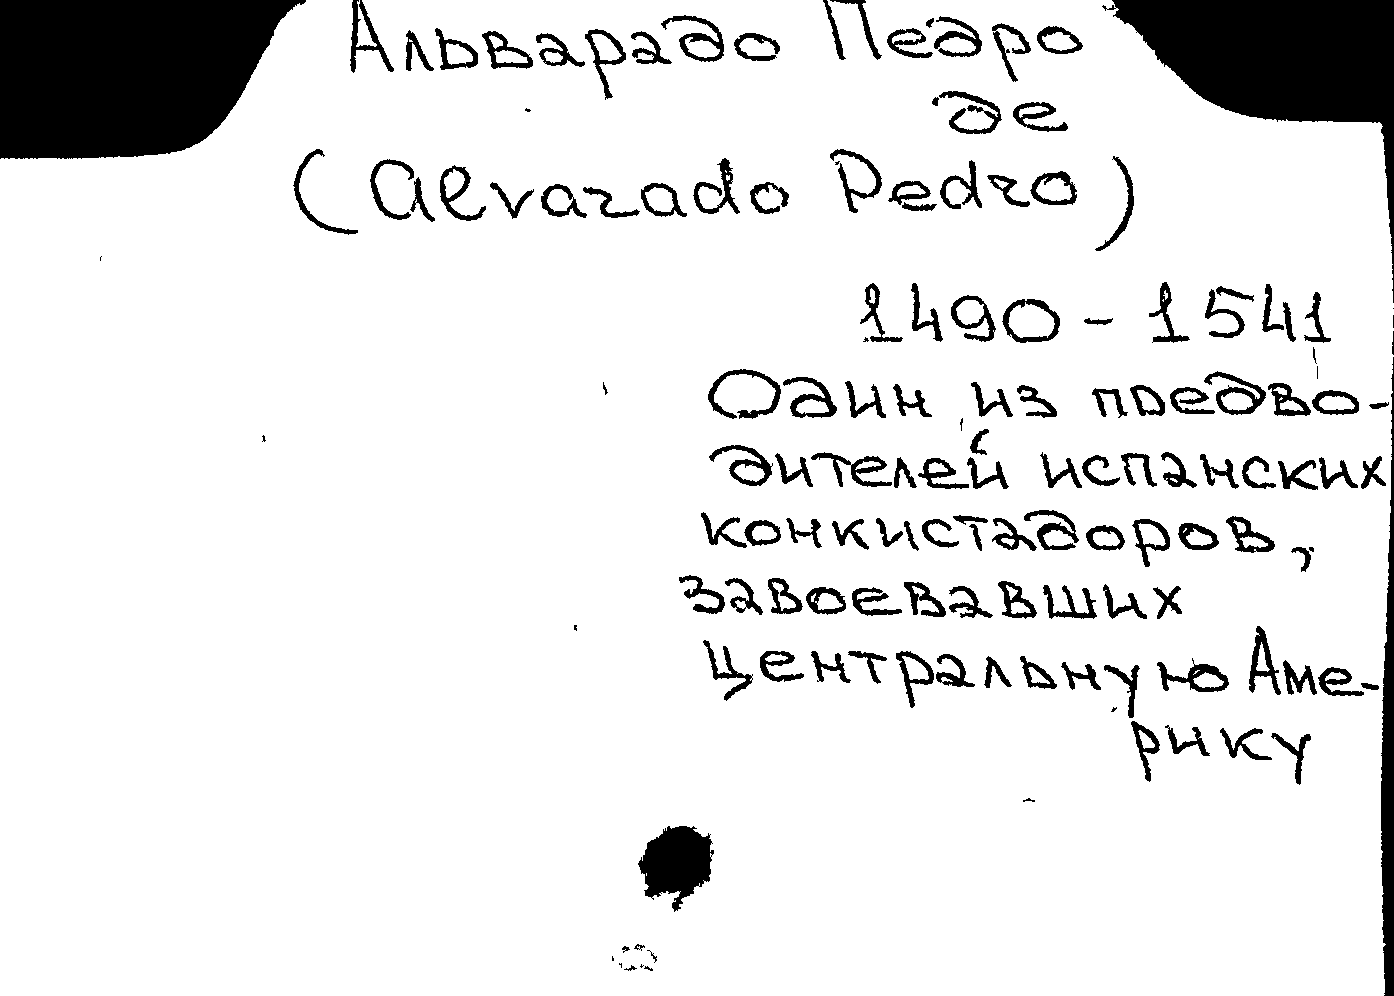 Альварадо Педро
де
(Alvarado Pedro)
1490-1541
Один из предво-
дителей испанских
конкистадоров,
завоевавших
центральную Аме-
рику